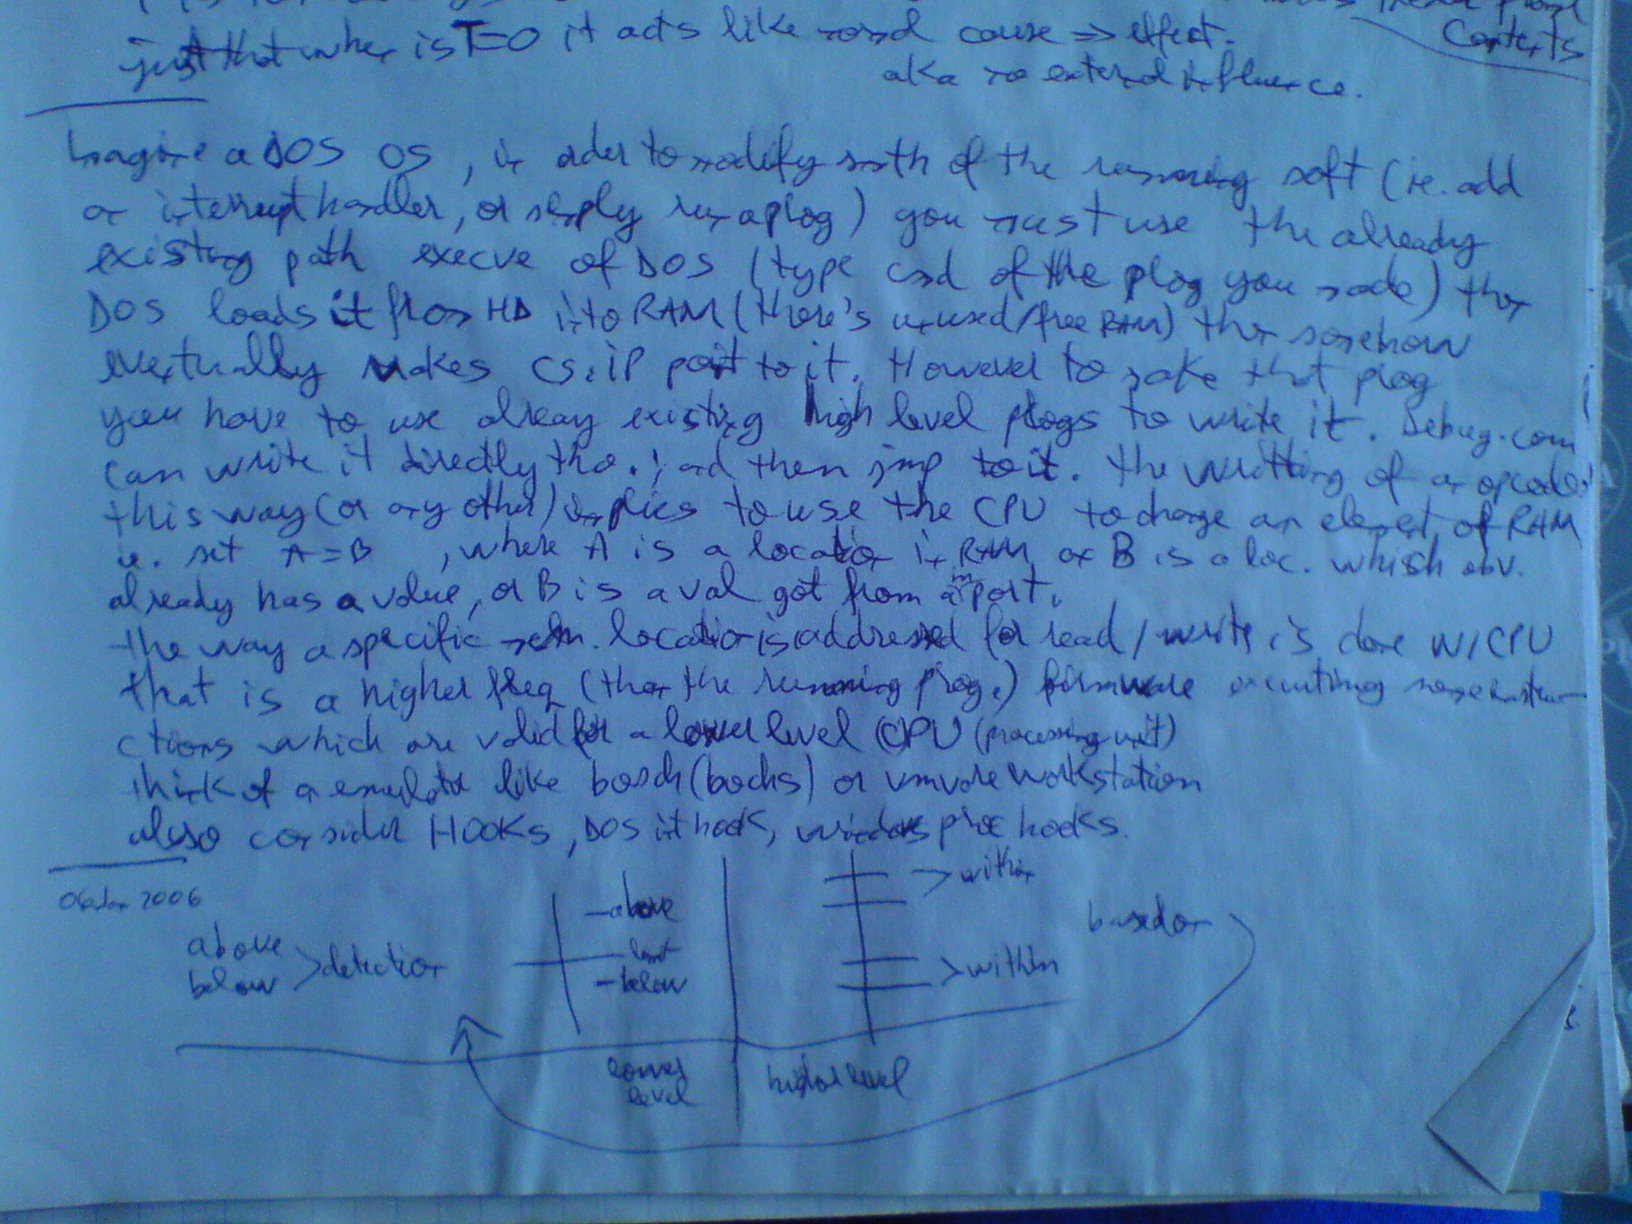 just that when is T=0 it acts like normal cause => effect.
Contents
aka no external influence.
Imagine a DOS OS, in order to modify smth of the running soft (ie. add
an interrupt handler, or simply run a prog) you must use the already
existing path execve of DOS (type cmd of the prog you made) then
DOS loads it from HD into RAM (there's unused/free RAM) then somehow
eventually makes CS:IP point to it. However to make that prog
you have to use alreay existing high level progs to write it. Debug.com
can write it directly tho. ; and then jmp to it. the writting of an opcode
this way (or any other) implies to use the CPU to change an element of RAM
ie. set A=B , where A is a location in RAM or B is a loc. which obv.
already has a value, or B is a val got from a in port.
the way a specific mem. location is addressed for read/write is done w/CPU
that is a higher freq (than the running prog.) firmware executing some instru-
ctions which are valid for a lower level CPU (processing unit)
think of a emulator like bosch (bochs) or vmware workstation
also consider HOOKs, DOS int hook, windows proc hooks.
06Jan 2006
above
below
>detection
-above
-limit
-below
->within
>within
based on
lower
level
higher level